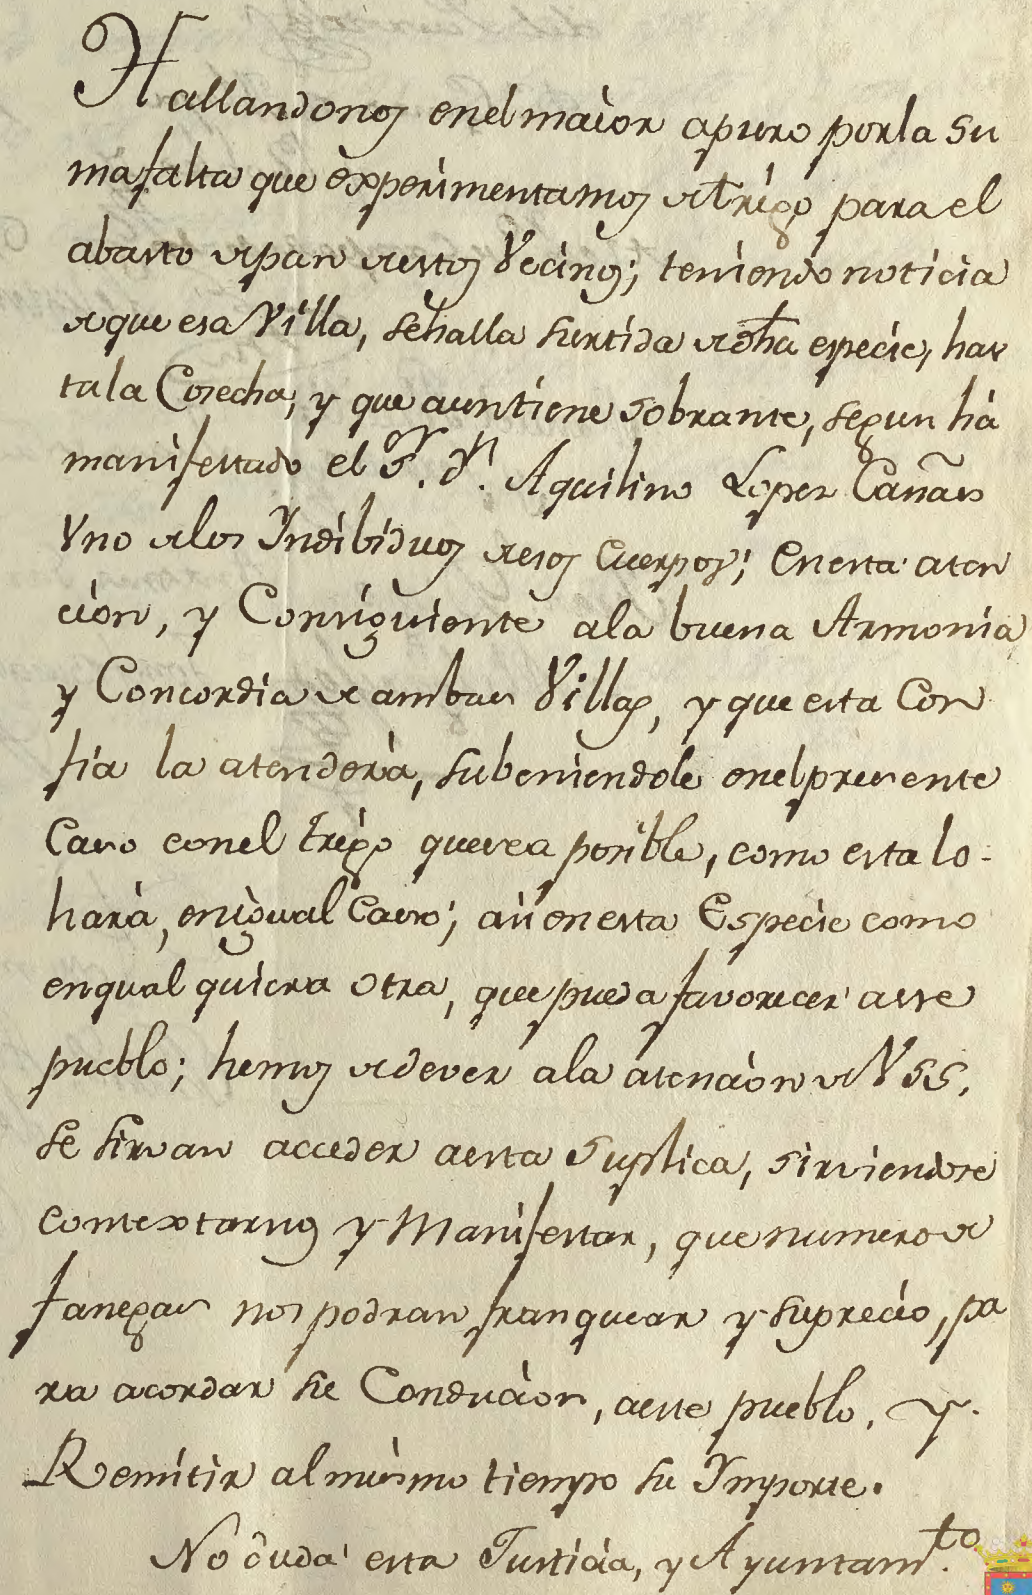 Hallandonos enel maior apuro porla su
ma falta que experimentamos de trigo para el
abasto de pan de estos Vecinos; teniendo noticia
de que esa Villa, se halla surtida de dha especie, has
ta la Cosecha, y que aun tiene sobrante, segun há
manifestado el Sr. Dn. Aquilino Lopez Cañas
Vno de los Yndibiduos de esos Cuerpos; en esta aten
cion, y Consiguiente a la buena Armonia
y Concordia de ambas Villas, y que esta Con
fia la atenderà, subeniendole enel presente
Caso conel trigo que sea posible, como esta lo
harà, en igual Caso; asi en esta Especie como
en qual quiera otra, que pueda favorecer a ese
pueblo; hemos de dever a la atencion de VSS.
se sirvan acceder a esta Suplica, sirviendose
contextarnos y Manifestar, que numero de
fanegas nos podran franquear y su precio, pa
ra acordar su Conducion, a este pueblo, y
Remitir al mismo tiempo su Ymporte.
No duda esta Justicia, y Ayuntamto.